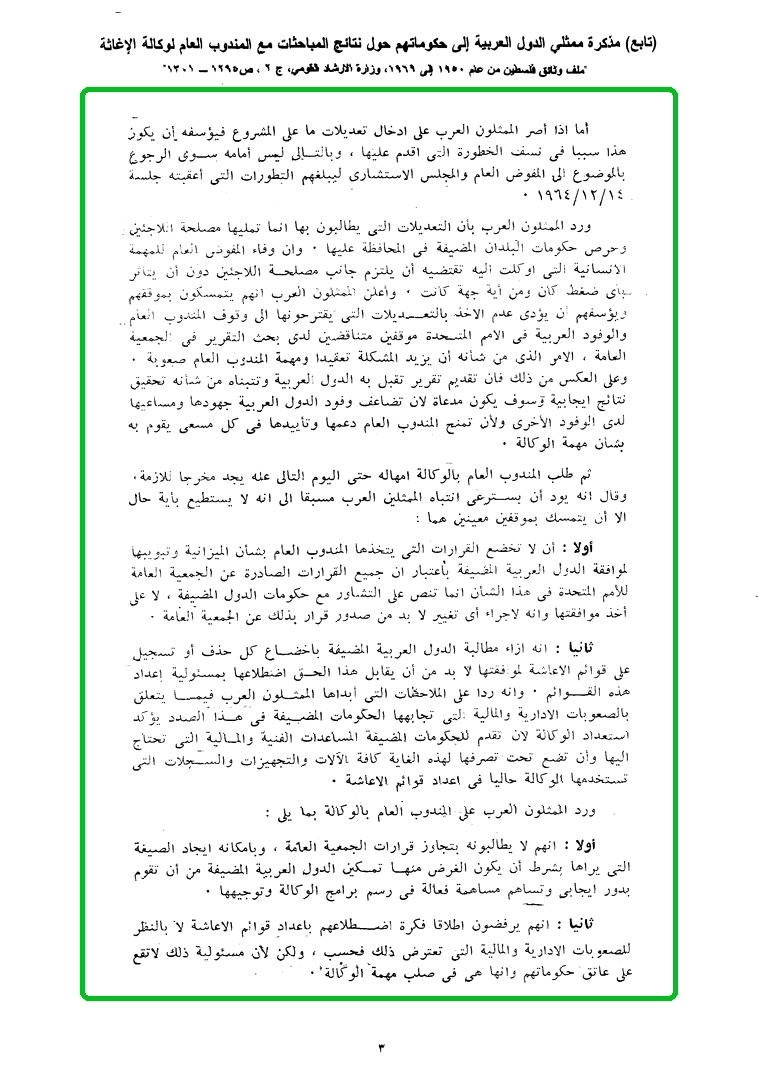 (تابع) مذكرة ممثلي الدول العربية إلى حكوماتهم حول نتائج المباحثات مع المندوب العام لوكالة الإغاثة
"ملف وثائق فلسطين من عام ١٩٥٠ إلى ١٩٦٩، وزارة الارشاد القومي، ج ٢ ، ص ١٢٩٥ – ١٣٠١"
أما اذا أصر الممثلون العرب على ادخال تعديلات ما على المشروع فيؤسفه أن يكون
هذا سببا فى نسف الخطورة التى اقدم عليها ، وبالتالى ليس أمامه سوى الرجوع
بالموضوع الى المفوض العام والمجلس الاستشارى ليبلغهم التطورات التى أعقبته جلسة
١٩٦٤/١٢/١٤ ٠
ورد الممثلون العرب بأن التعديلات التى يطالبون بها انما تمليها مصلحة اللاجئين
وحرص حكومات البلدان المضيفة فى المحافظة عليها ٠ وان وفاء المفوض العام للمهمة
الانسانية التى اوكلت اليه تقتضيه أن يلتزم جانب مصلحة اللاجئين دون أن يتأثر
بأى ضغط كان ومن أية جهة كانت ٠ وأعلن الممثلون العرب انهم يتمسكون بموقفهم
ويؤسفهم أن يؤدى عدم الاخذ بالتعديلات التى يقترحونها الى وقوف المندوب العام
والوفود العربية فى الامم المتحدة موقفين متناقضين لدى بحث التقرير فى الجمعية
العامة ، الامر الذى من شأنه أن يزيد المشكلة تعقيدا ومهمة المندوب العام صعوبة ٠
وعلى العكس من ذلك فان تقديم تقرير تقبل به الدول العربية وتتبناه من شأنه تحقيق
نتائج ايجابية وسوف يكون مدعاة لان تضاعف وفود الدول العربية جهودها ومساعيها
لدى الوفود الأخرى ولأن تمنح المندوب العام دعمها وتأييدها فى كل مسعى يقوم به
بشأن مهمة الوكالة ٠
ثم طلب المندوب العام بالوكالة امهاله حتى اليوم التالى عله يجد مخرجا للازمة٠
وقال انه يود أن يسترعى انتباه الممثلين العرب مسبقا الى انه لا يستطيع بأية حال
الا أن يتمسك بموقفين معينين هما :
أولا : أن لا تخضع القرارات التى يتخذها المندوب العام بشأن الميزانية وتبويبها
لموافقة الدول العربية المضيفة بأعتبار ان جميع القرارات الصادرة عن الجمعية العامة
للأمم المتحدة فى هذا الشأن انما تنص على التشاور مع حكومات الدول المضيفة ، لا على
أخذ موافقتها وانه لاجراء أى تغيير لا بد من صدور قرار بذلك عن الجمعية العامة ٠
ثانيا : انه ازاء مطالبة الدول العربية المضيفة باخضاع كل حذف أو تسجيل
على قوائم الاعاشة لموافقتها لا بد من أن يقابل هذا الحق اضطلاعها بمسئولية إعداد
هذه القوائم ٠ وانه ردا على الملاحظات التى أبداها الممثلون العرب فيما يتعلق
بالصعوبات الادارية والمالية التى تجابهها الحكومات المضيفة فى هذا الصدد يؤكد
استعداد الوكالة لان تقدم للحكومات المضيفة المساعدات الفنية والمالية التى تحتاج
اليها وأن تضع تحت تصرفها لهذه الغاية كافة الآلات والتجهيزات والسجلات التى
تستخدمها الوكالة حاليا فى اعداد قوائم الاعاشة ٠
ورد الممثلون العرب على المندوب العام بالوكالة بما يلى :
أولا : انهم لا يطالبونه بتجاوز قرارات الجمعية العامة ، وبامكانه ايجاد الصيغة
التى يراها بشرط أن يكون الغرض منها تمكين الدول العربية المضيفة من أن تقوم
بدور ايجابى وتساهم مساهمة فعالة فى رسم برامج الوكالة وتوجيهها ٠
ثانيا : انهم يرفضون اطلاقا فكرة اضطلاعهم باعداد قوائم الاعاشة لا بالنظر
للصعوبات الادارية والمالية التى تعترض ذلك فحسب ، ولكن لأن مسئولية ذلك لاتقع
على عاتق حكوماتهم وانها هى فى صلب مهمة الوكالة ٠
٣